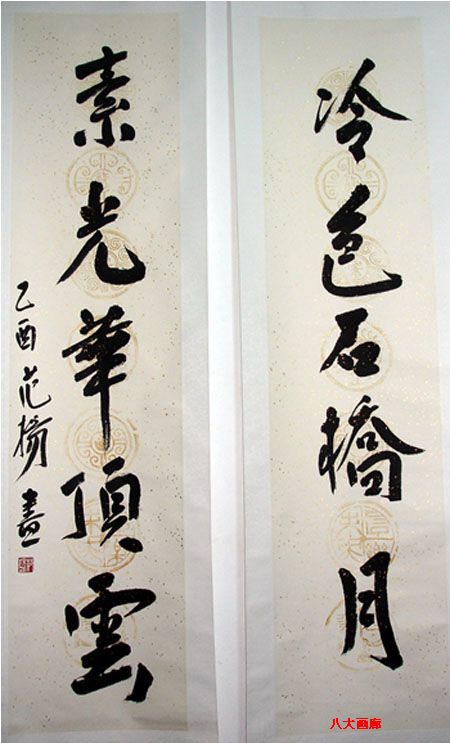 冷色石橋月
素光華頂雲
乙酉范揚書
八大画廊